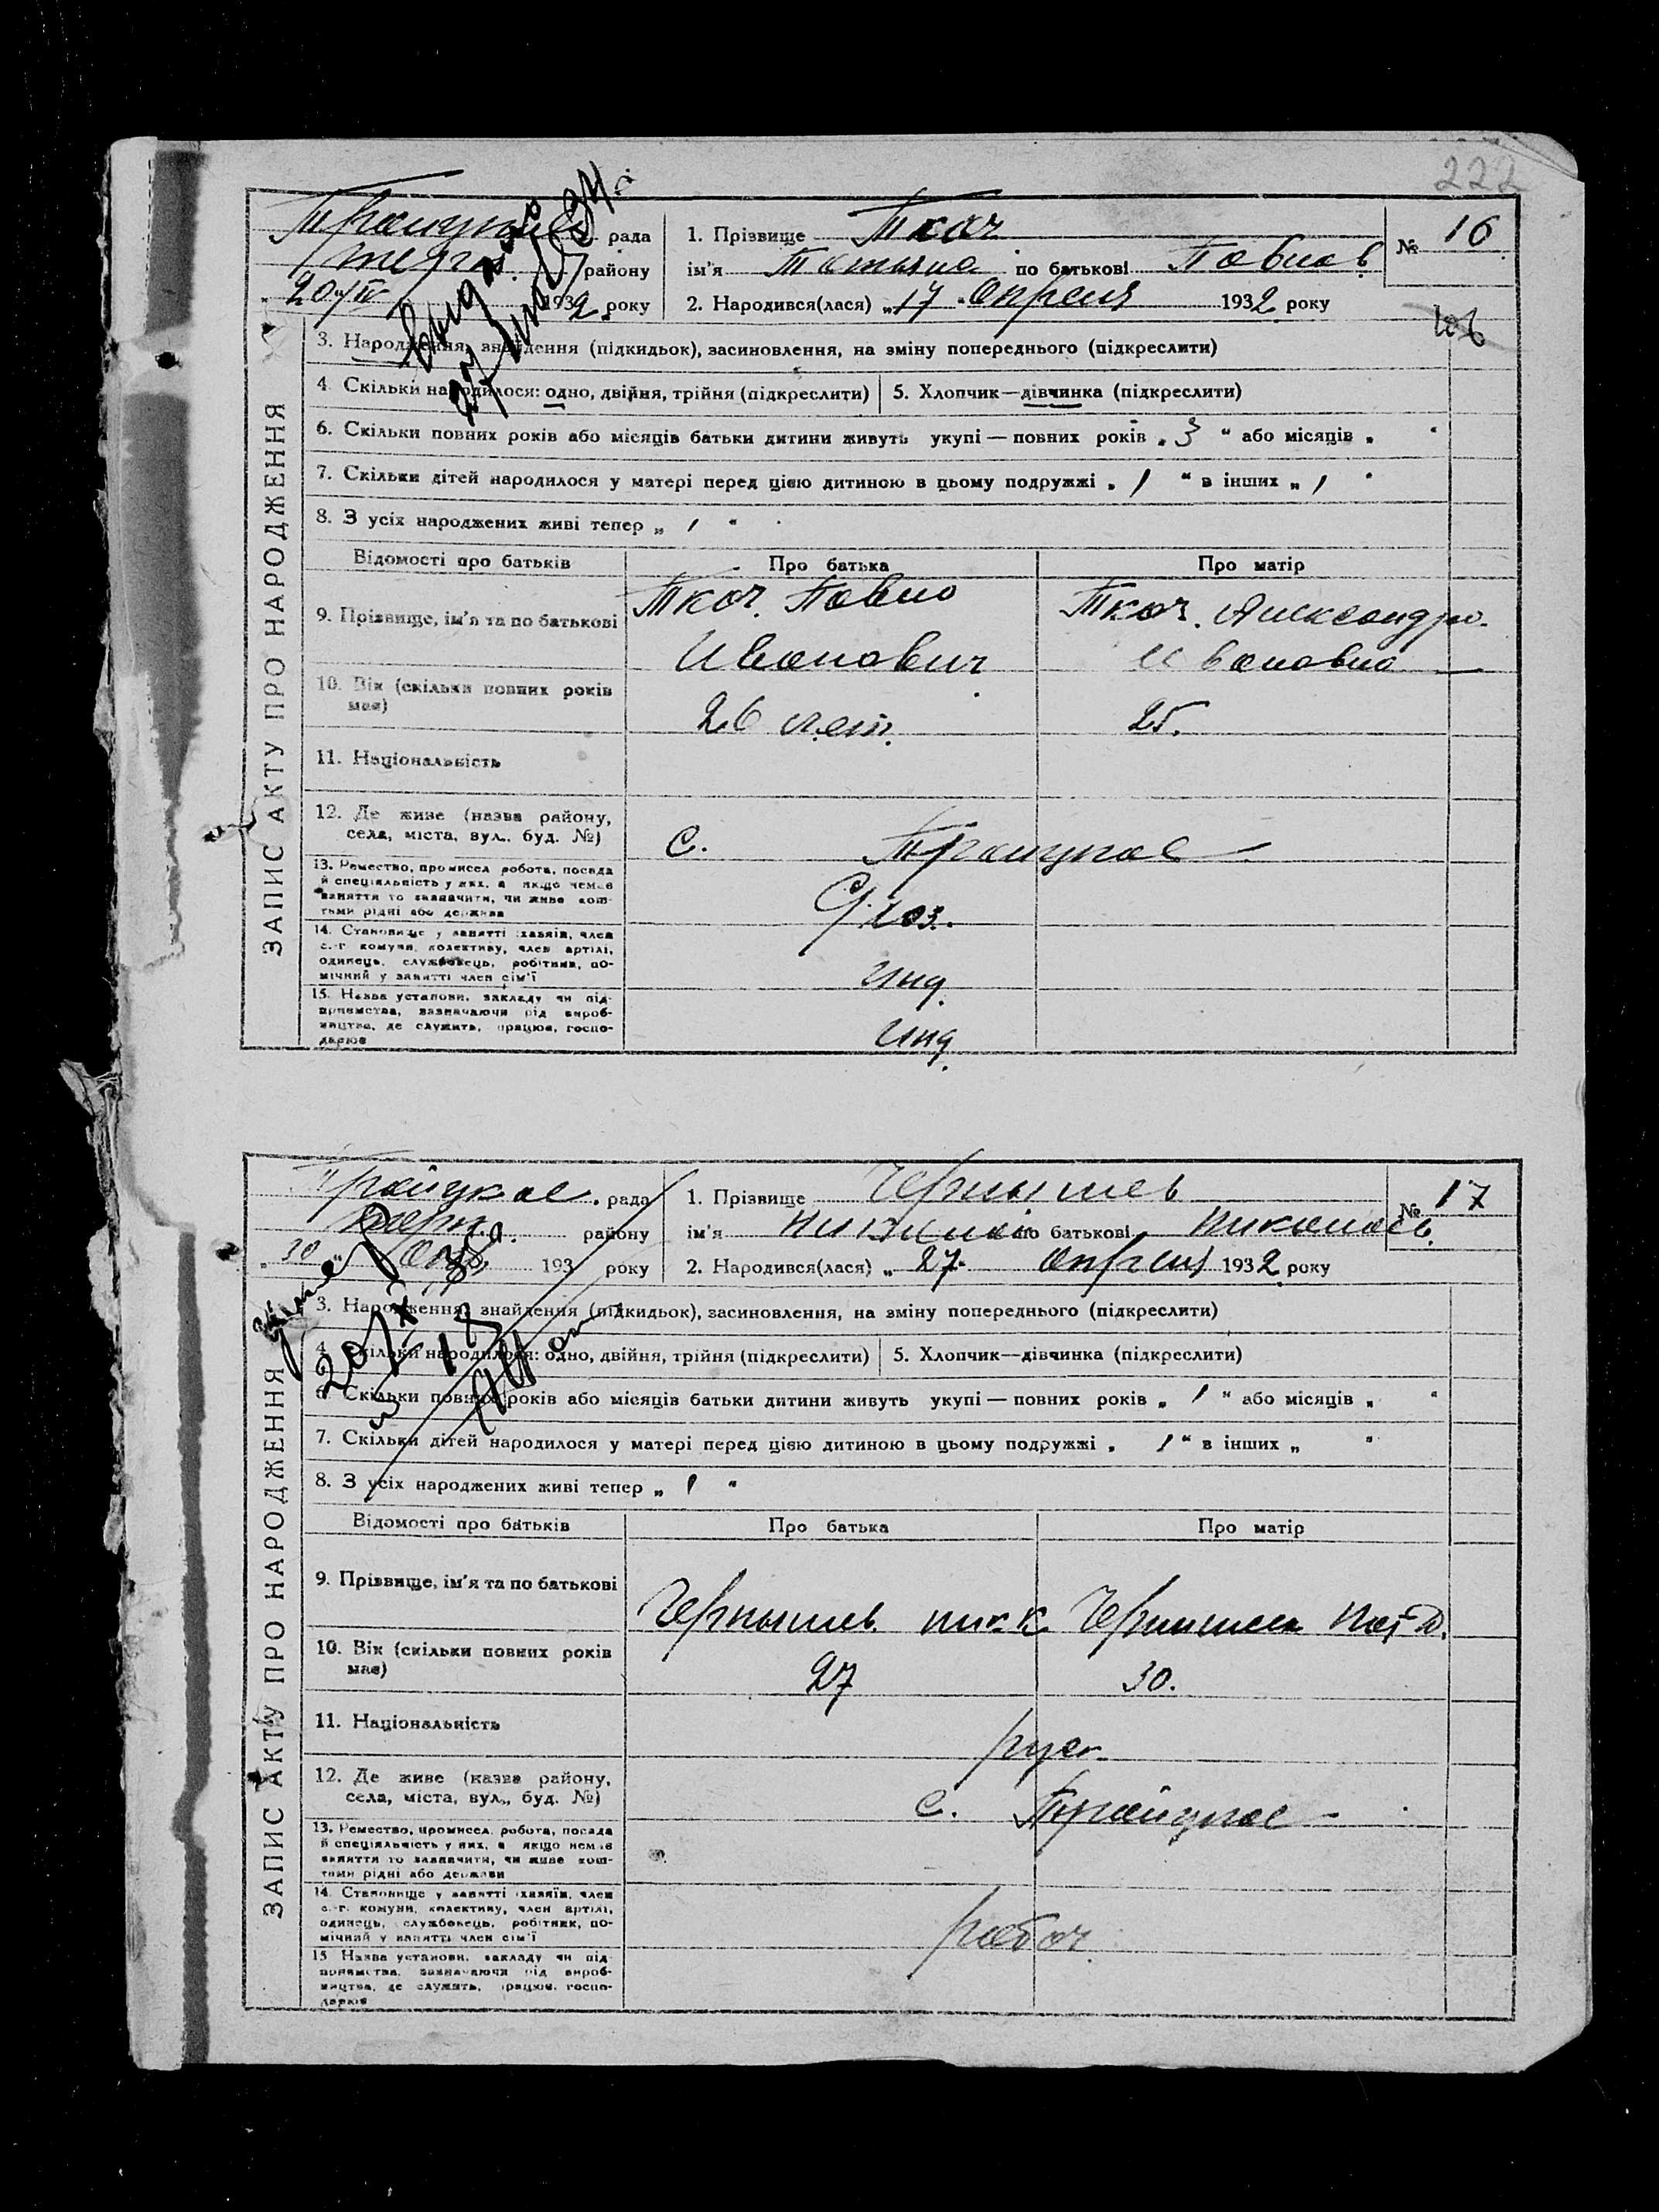 222
Троицкое рада
району
20/IV 1932 року
1. Прізвище Ткач
ім'я Татьяна по батькові Павлов
2. Народився(лася) „17" Апреля 1932 року
№ 16
ЗАПИС АКТУ ПРО НАРОДЖЕННЯ
3. Народження, знайдення (підкидьок), засиновлення, на зміну попереднього (підкреслити)
4. Скільки народилося: одно, двійня, трійня (підкреслити)
5. Хлопчик—дівчинка (підкреслити)
6. Скільки повних років або місяців батьки дитини живуть укупі — повних років „ 3 " або місяців „ "
7. Скільки дітей народилося у матері перед цією дитиною в цьому подружжі „ 1 " в інших „ 1 "
8. З усіх народжених живі тепер „ 1 "
Відомості про батьків
Про батька
Про матір
9. Прізвище, ім'я та по батькові
Ткач. Павло
Иванович
Ткач. Александра
Ивановна
10. Вік (скільки повних років має)
26 лет.
25.
11. Національність
12. Де живе (назва району, села, міста, вул., буд. №)
с. Троицкое
13. Ремество, промисел, робота, посада й спеціяльність у них, а якщо немає заняття то зазначити, чи живе коштами рідні або держави
С/хоз.
14. Становище у занятті: хазяїн, член с.-г. комуни, колективу, член артілі, одинець, службовець, робітник, помічний у занятті член сім'ї
Инд.
15. Назва установи, закладу чи підприємства, зазначаючи рід виробництва, де служить, працює, господарює
Инд.
Троицкое рада
району
30 193 року
1. Прізвище Чернышев
ім'я по батькові Николаев.
2. Народився(лася) „ 27. Апреля 1932 року
№ 17
ЗАПИС АКТУ ПРО НАРОДЖЕННЯ
3. Народження, знайдення (підкидьок), засиновлення, на зміну попереднього (підкреслити)
4. Скільки народилося: одно, двійня, трійня (підкреслити)
5. Хлопчик—дівчинка (підкреслити)
6. Скільки повних років або місяців батьки дитини живуть укупі — повних років „ 1 " або місяців „ "
7. Скільки дітей народилося у матері перед цією дитиною в цьому подружжі „ 1 " в інших „ "
8. З усіх народжених живі тепер „ 1 "
Відомості про батьків
Про батька
Про матір
9. Прізвище, ім'я та по батькові
Чернышев Ник К.
Чернышева
10. Вік (скільки повних років має)
27
30.
11. Національність
руск.
12. Де живе (назва району, села, міста, вул., буд. №)
с. Троицкое
13. Ремество, промисел, робота, посада й спеціяльність у них, а якщо немає заняття то зазначити, чи живе коштами рідні або держави
14. Становище у занятті: хазяїн, член с.-г. комуни, колективу, член артілі, одинець, службовець, робітник, помічний у занятті член сім'ї
рабоч.
15. Назва установи, закладу чи підприємства, зазначаючи рід виробництва, де служить, працює, господарює